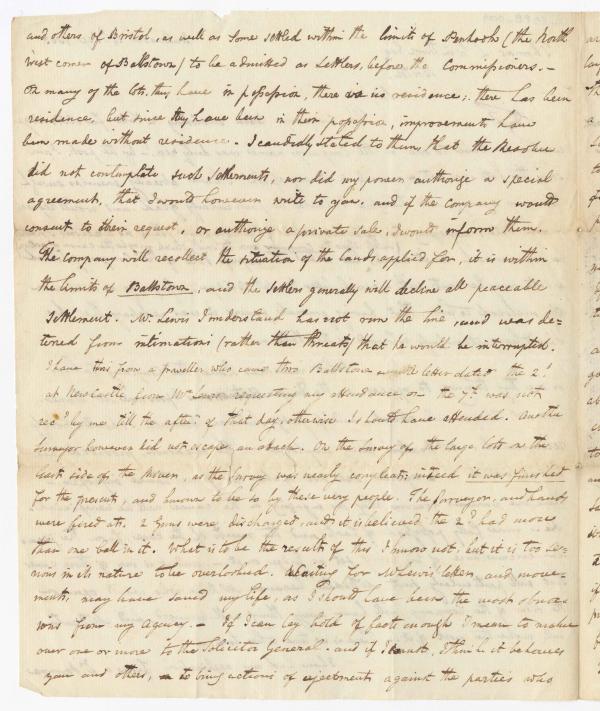 and others of Bristol, as well as some settled within the limits of (the North
west corner of Ballstown) to be admitted as Settlers, before the Commissioners. –
On many of the lots, they have in possession there is no residence; there has been
residence, but since they have been in their possession, improvements have
been made without residence. – I candidly stated to them, that the Resolve
did not contemplate such Settlements, nor did my powers authorize a special
agreement, that I would however write to you, and if the Company would
consent to their request, or authorize a private sale, I would inform them.
The Company will recollect the situation of the lands applied for, it is within
the limits of Ballstown, and the Settlers generally will decline all peaceable
Settlement. Mr. Lewis I understand has not run the line, and was de=
tered from intimations (rather than threats) that he would be interrupted.
I have this from a traveller who came thro Ballstown. letter dated the 2d
at Newcastle from Mr Lewis requesting my attendance on the 7th was not
recd by me till the aftern of that day, otherwise I should have attended. Another
Surveyor however did not escape an attack. On the Survey of the large lots on the
East side of the River, as the Survey was nearly compleat; indeed it was finished
for the present, and known to be so by these very people. The Surveyor, and hands
were fired at. 2 Guns were discharged, and it is believed the 2d had more
than one ball in it. What is to be the result of this I know not, but it is too se=
rious in its nature to be overlooked. Waiting for Mr Lewis' letter, and move=
ments, may have saved my life, as I should have been the most obnox=
ious from my Agency. – If I can lay hold of facts enough I mean to make
over one or more to the Solicitor General. and if I must, I think it behooves
you and others, to bring actions of ejectments against the parties who